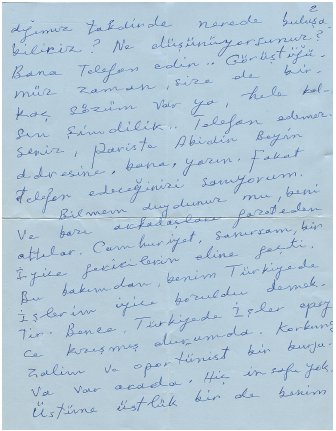 2
diğimiz takdirde nerede buluşa
biliriz? Ne düşünüyorsunuz?
Bana Telefon edin.. Görüştüğü
müz zaman, size de bir
kaç sözüm var ya, hele kal-
sın şimdilik.. Telefon edemez-
seniz, Pariste Abidin Beyin
adresine, bana, yazın. Fakat
telefon edeceğinizi sanıyorum.
Bilmem duydunuz mu, beni
ve bazı arkadaşları gazeteden
attılar. Cumhuriyet, sanırsam, bir
iyice gericilerin eline geçti.
Bu bakımdan, benim Türkiyede
işlerim iyice bozuldu demek-
tir. Bence, Türkiyede işler epey
ce kızışmış durumda. Korkunç
zalim ve oportünist bir burju-
va var orada. Hiç insafı yok.
Üstüne üstlük bir de benim